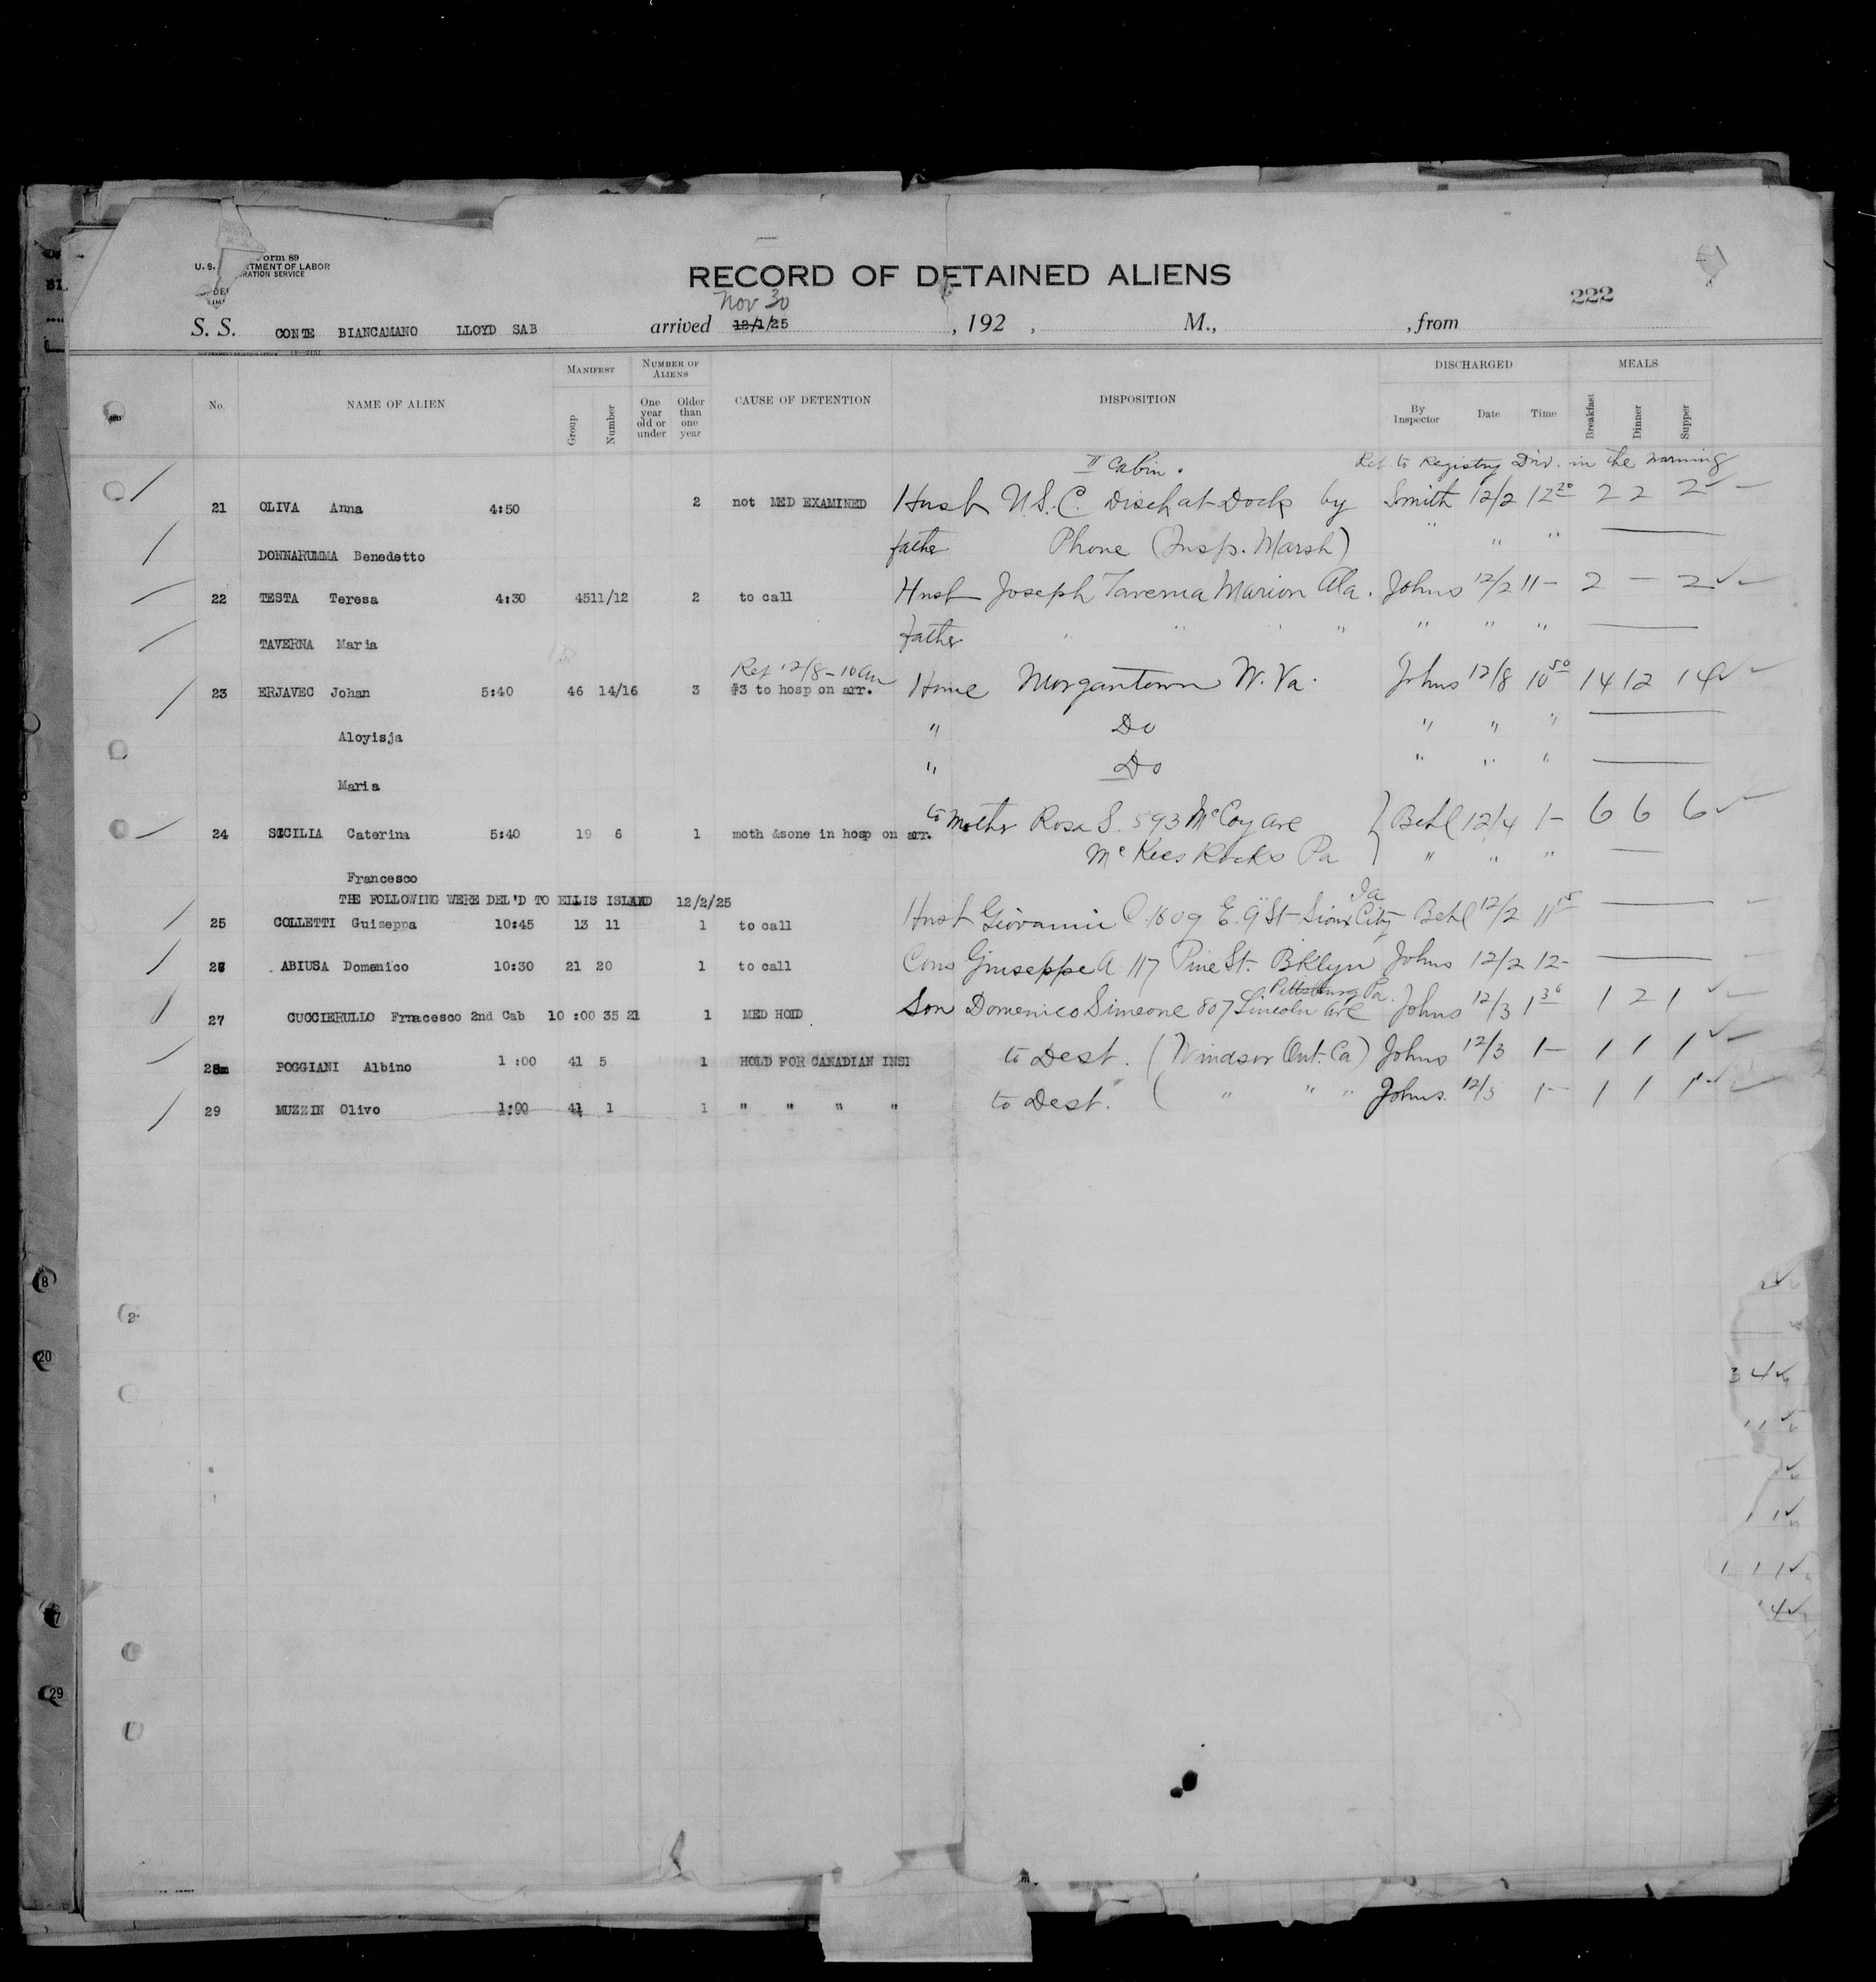 Form 89
U. S. DEPARTMENT OF LABOR
IMMIGRATION SERVICE
RECORD OF DETAINED ALIENS
222
Nov 30
S. S. CONTE BIANCAMANO LLOYD SAB arrived 12/1/25 , 192 , M., , from
No. NAME OF ALIEN MANIFEST Group Number NUMBER OF ALIENS One year old or under Older than one year CAUSE OF DETENTION DISPOSITION DISCHARGED By Inspector Date Time MEALS Breakfast Dinner Supper
II Cabin. Ret to Registry Div. in the morning
21 OLIVA Anna 4:50 2 not MED EXAMINED Husb U.S.C. Disch at Dock by Smith 12/2 12 20 2 2 2
DONNARUMMA Benedetto father Phone (Insp. Marsh) " " "
22 TESTA Teresa 4:30 4511/12 2 to call Husb Joseph Taverna Marion Ala. Johns 12/2 11- 2 - 2
TAVERNA Maria father " " " " " " "
Ref 12/8-10am
23 ERJAVEC Johan 5:40 46 14/16 3 #3 to hosp on arr. Home Morgantown W. Va. Johns 12/8 10 50 14 12 14
Aloyisja " Do " " "
Maria " Do " " "
24 SICILIA Caterina 5:40 19 6 1 moth &sone in hosp on arr. to Mother Rosa S. 593 McCoy ave } Behl 12/4 1- 6 6 6
Francesco McKees Rocks Pa " " "
THE FOLLOWING WERE DEL'D TO ELLIS ISLAND 12/2/25
25 COLLETTI Guiseppa 10:45 13 11 1 to call Husb Giovanni C. 1609 E. 9" St Sioux City Ia Behl 12/2 11 15
26 ABIUSA Domenico 10:30 21 20 1 to call Cous Giuseppe A 117 Pine St. Bklyn Johns 12/2 12-
27 CUCCIERULLO Frnacesco 2nd Cab 10 :00 35 21 1 MED HOLD Son Domenico Simeone 807 Lincoln ave Pittsburg Pa. Johns 12/3 1 36 1 2 1
28m POGGIANI Albino 1 :00 41 5 1 HOLD FOR CANADIAN INSP to Dest. (Windsor Ont. Ca) Johns 12/3 1- 1 1 1
29 MUZZIN Olivo 1:00 41 1 1 " " " " to Dest. ( " " " Johns. 12/3 1- 1 1 1
8
2
20
3 4
1 1
1 1
1 1 1
7
4
29